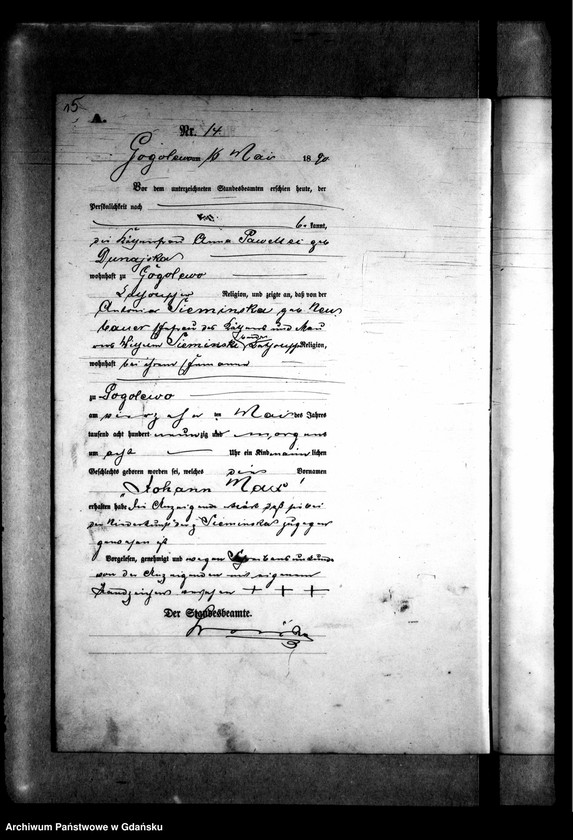 15
A.
Nr. 14
Gogolewo am 16 Mai 1890
Vor dem unterzeichneten Standesbeamten erschien heute, der
Persönlichkeit nach
be kannt,
die Käthnerfrau Anna Pawelski geb
Dunajska
wohnhaft zu Gogolewo
Religion, und zeigte an, daß von der
Antonie Sieminska geb Neu
bauer Ehefrau des Käthners und Mau
rers Sieminski beide Religion,
wohnhaft bei ihrem Ehemanne
zu Gogolewo
am vierzehn ten Mai des Jahres
tausend acht hundert neunzig morgens
um acht Uhr ein Kind männlichen
Geschlechts geboren worden sei, welches die Vornamen
"Johann Max"
erhalten habe Die Anzeigende erklärt daß sie bei
der Niederkunft der Sieminska zugegen
gewesen ist
Vorgelesen, genehmigt und wegen Schreibensunkunde
von der Anzeigenden mit eigenem
Handzeichen versehen + + +
Der Standesbeamte.
Archiwum Państwowe w Gdańsku